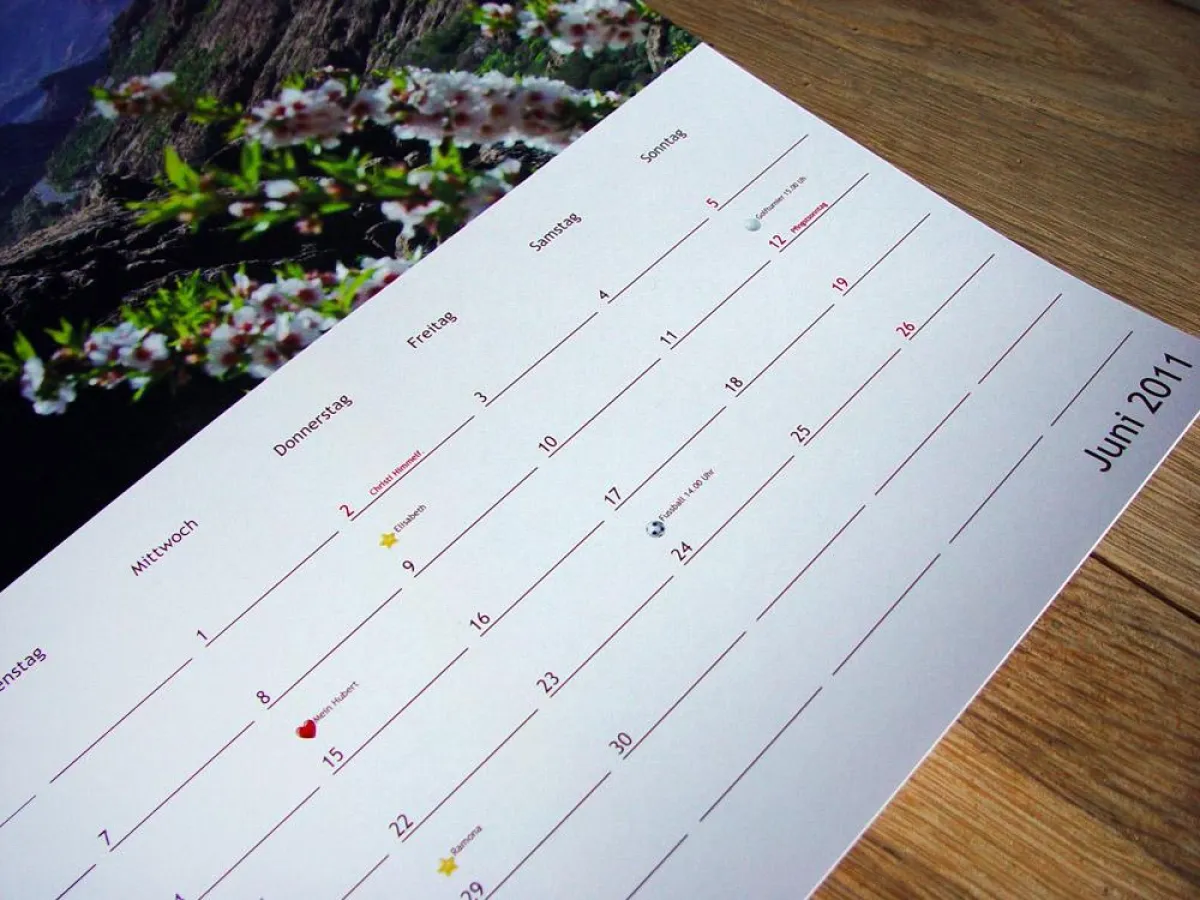 Juni 2011
enstag
Mittwoch
Donnerstag
Freitag
Samstag
Sonntag
1
2 Christi Himmelf.
3
4
5
7
8
Elisabeth
9
10
11
Golfturnier 15.00 Uh
12 Pfingstsonntag
Mein Hubert
15
16
17
18
19
22
23
Fussball 14.00 Uhr
24
25
26
Ramona
29
30